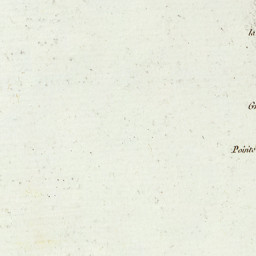 la
Gr
Pointe